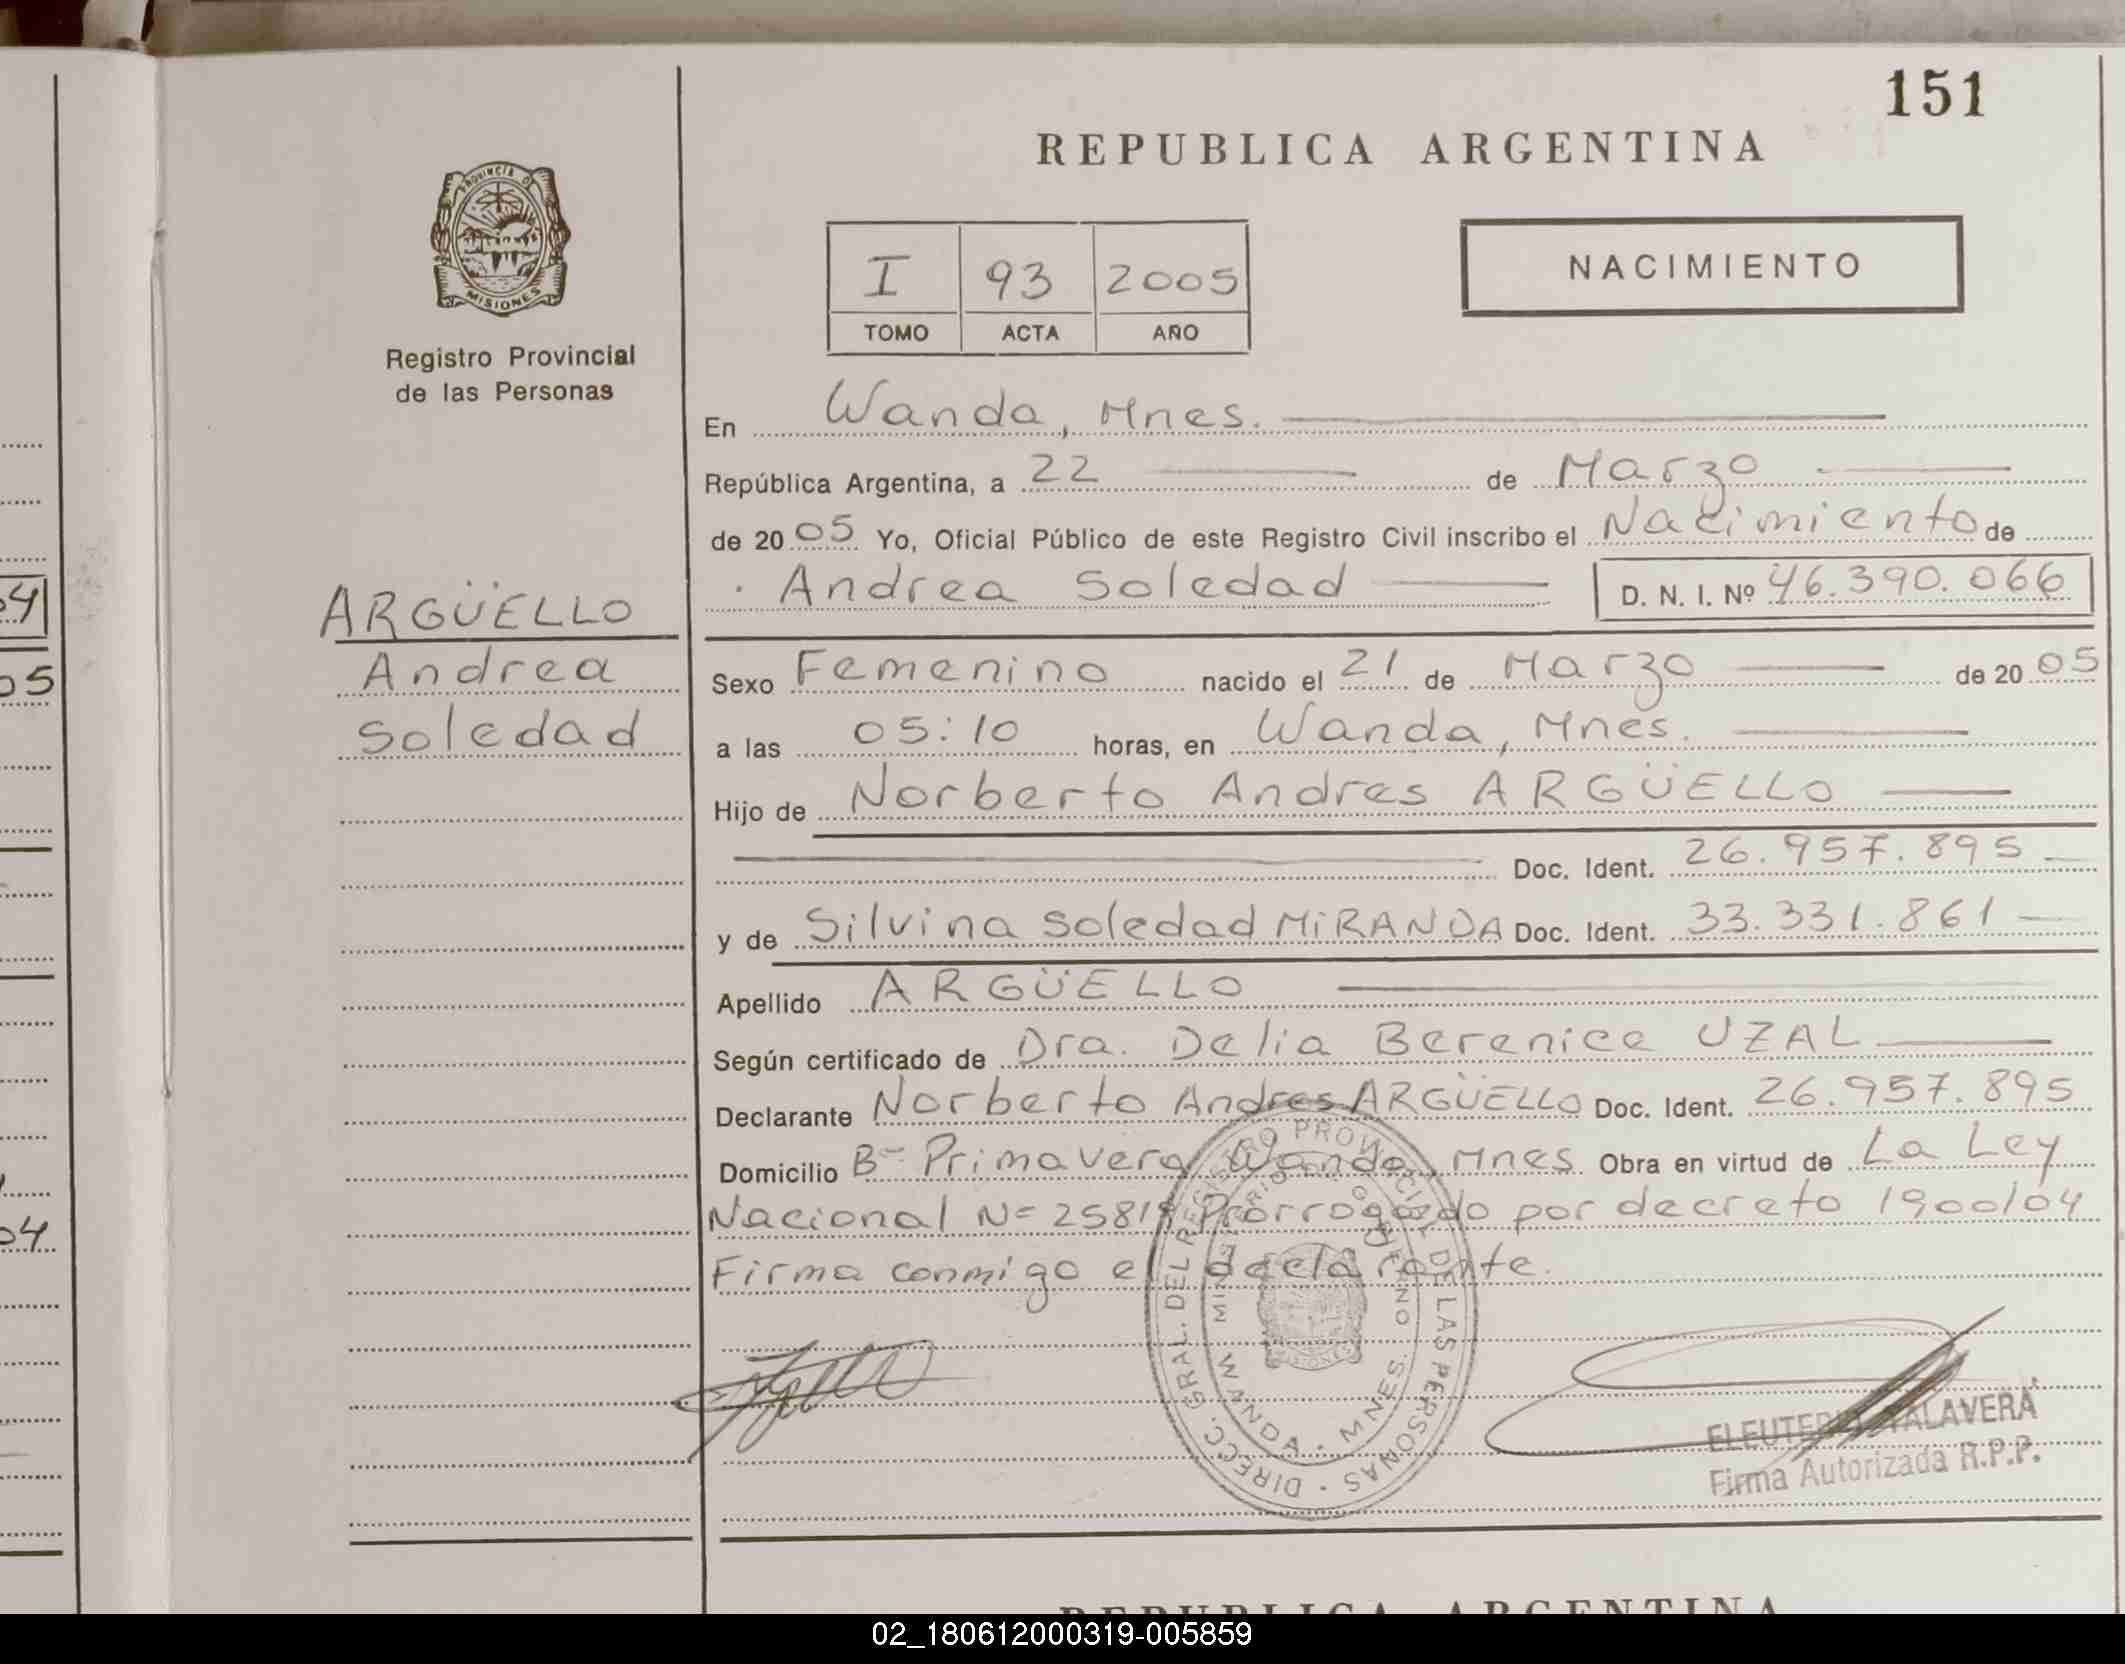 151
REPUBLICA ARGENTINA
PROVINCIA DE
MISIONES
Registro Provincial
de las Personas
I 93 2005
TOMO ACTA AÑO
NACIMIENTO
En Wanda, Mnes.
República Argentina, a 22 de Marzo
de 2005 Yo, Oficial Público de este Registro Civil inscribo el Nacimiento de
Andrea Soledad D. N. I. Nº 46.390.066
ARGÜELLO
Andrea
Soledad
Sexo Femenino nacido el 21 de Marzo de 2005
a las 05:10 horas, en Wanda, Mnes.
Hijo de Norberto Andres ARGÜELLO
Doc. Ident. 26.957.895
y de Silvina Soledad MIRANDA Doc. Ident. 33.331.861
Apellido ARGÜELLO
Según certificado de Dra. Delia Berenice UZAL
Declarante Norberto Andres ARGÜELLO Doc. Ident. 26.957.895
Domicilio Bº Primavera Wanda, Mnes Obra en virtud de La Ley
Nacional Nº 25819 Prorrogado por decreto 1900/04
Firma conmigo el declarante.
DIRECC. GRAL. DEL REGISTRO PROVINCIAL DE LAS PERSONAS
MINISTERIO DE GOBIERNO
WANDA - MNES.
MISIONES
ELEUTERIO TALAVERA
Firma Autorizada R.P.P.
04
05
04
REPUBLICA ARGENTINA
02_180612000319-005859